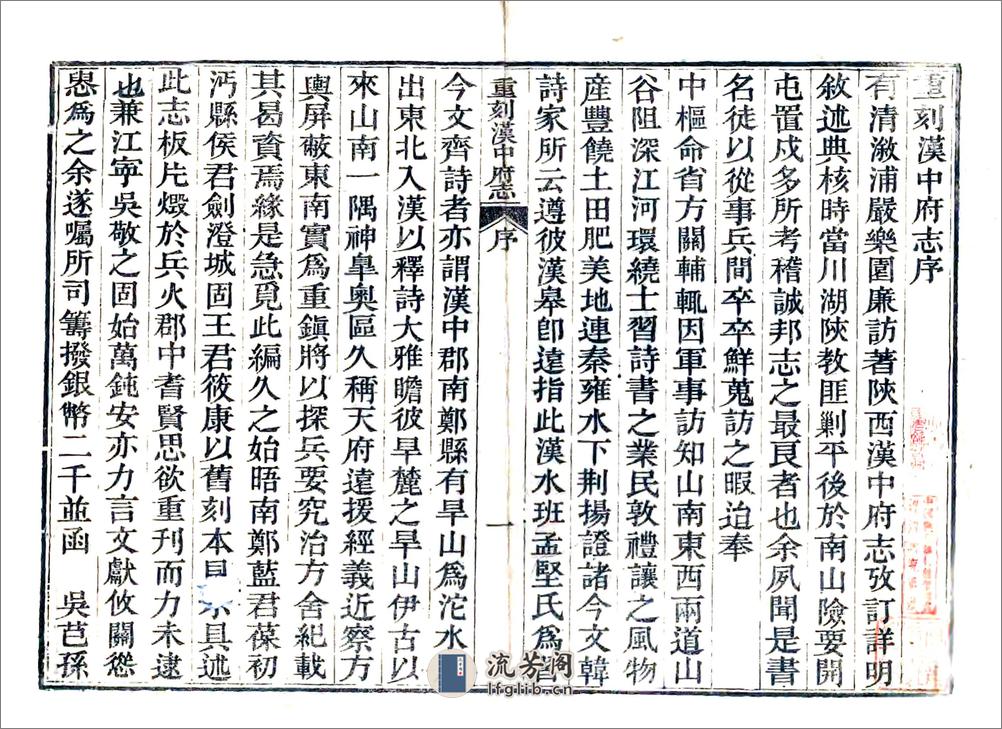 重刻漢中府志序
有清溆浦嚴樂園廉訪著陝西漢中府志攷訂詳明
敘述典核時當川湖陝教匪剿平後於南山險要開
屯置戍多所考稽誠邦志之最良者也余夙聞是書
名徒以從事兵間卒卒鮮蒐訪之暇迫奉
中樞命省方關輔輒因軍事訪知山南東西兩道山
谷阻深江河環繞士習詩書之業民敦禮讓之風物
產豐饒土田肥美地連秦雍水下荆揚證諸今文韓
詩家所云遵彼漢皋卽遠指此漢水班孟堅氏為
今文齊詩者亦謂漢中郡南鄭縣有旱山為沱水
出東北入漢以釋詩大雅瞻彼旱麓之旱山伊古以
來山南一隅神皐奥區久稱天府遠援經義近察方
輿屏蔽東南實為重鎮將以探兵要究治方舍紀載
其曷資焉緣是急覓此編久之始晤南鄭藍君葆初
沔縣侯君劍澄城固王君筱康以舊刻本具述
此志板片燬於兵火郡中耆賢思欲重刊而力未逮
也兼江寧吳敬之固始萬鈍安亦力言文獻攸關慫
恿為之余遂囑所司籌撥銀幣二千並函 吳芑孫
重刻漢中府志
序
一
流芳閣
lfglib.cn